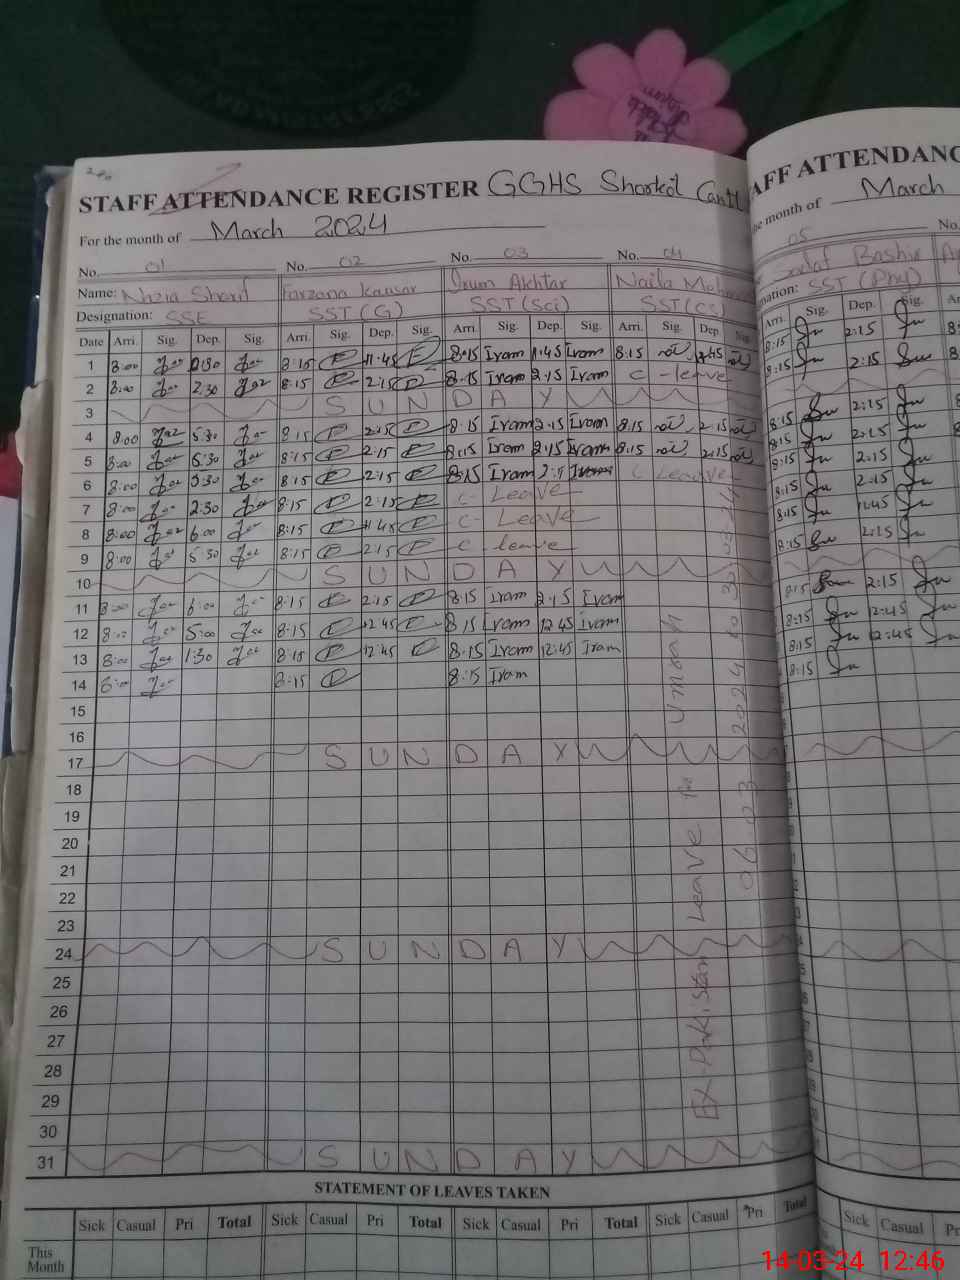 STAFF ATTENDANCE REGISTER GGHS Shorkot Cantt
For the month of March 2024
No. 01 No. 02 No. 03 No. 04
Name: Nazia Sharif Farzana Kausar Irum Akhtar Naila
Designation: SSE SST (G) SST (Sci) SST (CS)
Date Arri. Sig. Dep. Sig. Arri. Sig. Dep. Sig. Arri. Sig. Dep. Sig. Arri. Sig. Dep. Sig.
1 8:00 8:15 11:45 8:15 Iram 11:45 Iram 8:15 11:45
2 8:00 2:30 8:15 2:15 8:15 Iram 2:15 Iram C-leave
3 SUNDAY
4 8:00 5:30 8:15 2:15 8:15 Iram 2:15 Iram 8:15 2:15
5 8:00 5:30 8:15 2:15 8:15 Iram 2:15 Iram 8:15 2:15
6 8:00 5:30 8:15 2:15 8:15 Iram C Leave
7 8:00 2:30 8:15 2:15 C-Leave
8 8:00 6:00 8:15 11:45 C-Leave
9 8:00 5:30 8:15 2:15 C-leave
10 SUNDAY
11 8:00 6:00 8:15 2:15 8:15 Iram 2:15 Iram
12 8:00 5:00 8:15 12:45 8:15 Iram 12:45 Iram
13 8:00 1:30 8:15 12:45 8:15 Iram 12:45 Iram
14 8:15 8:15 Iram
15
16
17 SUNDAY
18
19
20
21
22
23
24 SUNDAY
25
26
27
28
29
30
31 SUNDAY
Ex Pakistan Leave for Umrah
06.03.2024 to 31-03-24
STATEMENT OF LEAVES TAKEN
Sick Casual Pri Total Sick Casual Pri Total Sick Casual Pri Total Sick Casual Pri Total
This
Month
AFF ATTENDANC
e month of March
05 No.
Sadaf Bashir
nation: SST (Phy)
Arri. Sig. Dep. Sig.
8:15 2:15
8:15 2:15
8:15 2:15
8:15 2:15
8:15 2:15
8:15 2:15
8:15 11:45
8:15 2:15
8:15 2:15
8:15 12:45
8:15 12:45
8:15
Sick Casual
14-03-24 12:46